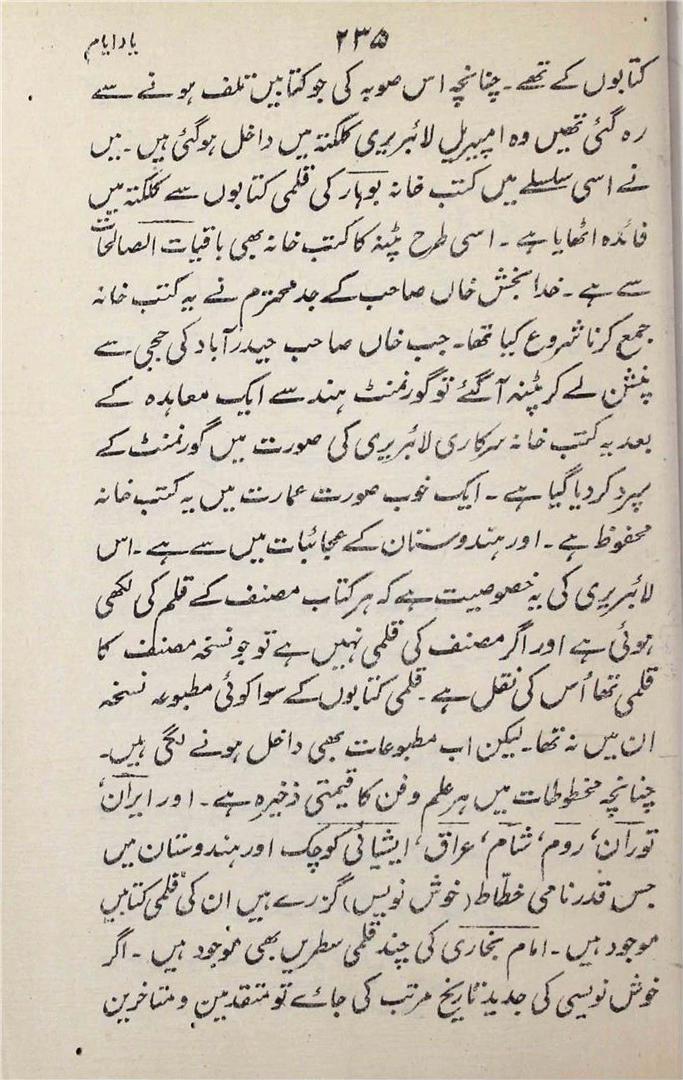 یاد ایام
۲۳۵
کتابوں کے تھے۔ چنانچہ اس صوبہ کی جو کتابیں تلف ہونے سے
رہ گئی تھیں وہ امپیریل لائبریری کلکتہ میں داخل ہوگئی ہیں۔ میں
نے اسی سلسلے میں کتب خانہ بوہار کی قلمی کتابوں سے کلکتہ میں
فائدہ اٹھایا ہے۔ اسی طرح پٹنہ کا کتب خانہ بھی باقیات الصالحات
سے ہے۔ خدا بخش خاں صاحب کے جد محترم نے یہ کتب خانہ
جمع کرنا شروع کیا تھا۔ جب خاں صاحب حیدرآباد کی ججی سے
پنشن لے کر پٹنہ آگئے تو گورنمنٹ ہند سے ایک معاہدہ کے
بعد یہ کتب خانہ سرکاری لائبریری کی صورت میں گورنمنٹ کے
سپرد کر دیا گیا ہے۔ ایک خوب صورت عمارت میں یہ کتب خانہ
محفوظ ہے۔ اور ہندوستان کے عجائبات میں سے ہے۔ اس
لائبریری کی یہ خصوصیت ہے کہ ہر کتاب مصنف کے قلم کی لکھی
ہوئی ہے اور اگر مصنف کی قلمی نہیں ہے تو جو نسخہ مصنف کا
قلمی تھا اُس کی نقل ہے۔ قلمی کتابوں کے سوا کوئی مطبوعہ نسخہ
ان میں نہ تھا۔ لیکن اب مطبوعات بھی داخل ہونے لگی ہیں۔
چنانچہ مخطوطات میں ہر علم و فن کا قیمتی ذخیرہ ہے۔ اور ایران،
توران، روم، شام، عراق، ایشیائی کوچک اور ہندوستان میں
جس قدر نامی خطّاط (خوش نویس) گزرے ہیں ان کی قلمی کتابیں
موجود ہیں۔ امام بخاری کی چند قلمی سطریں بھی موجود ہیں۔ اگر
خوش نویسی کی جدید تاریخ مرتب کی جائے تو متقدمین و متاخرین